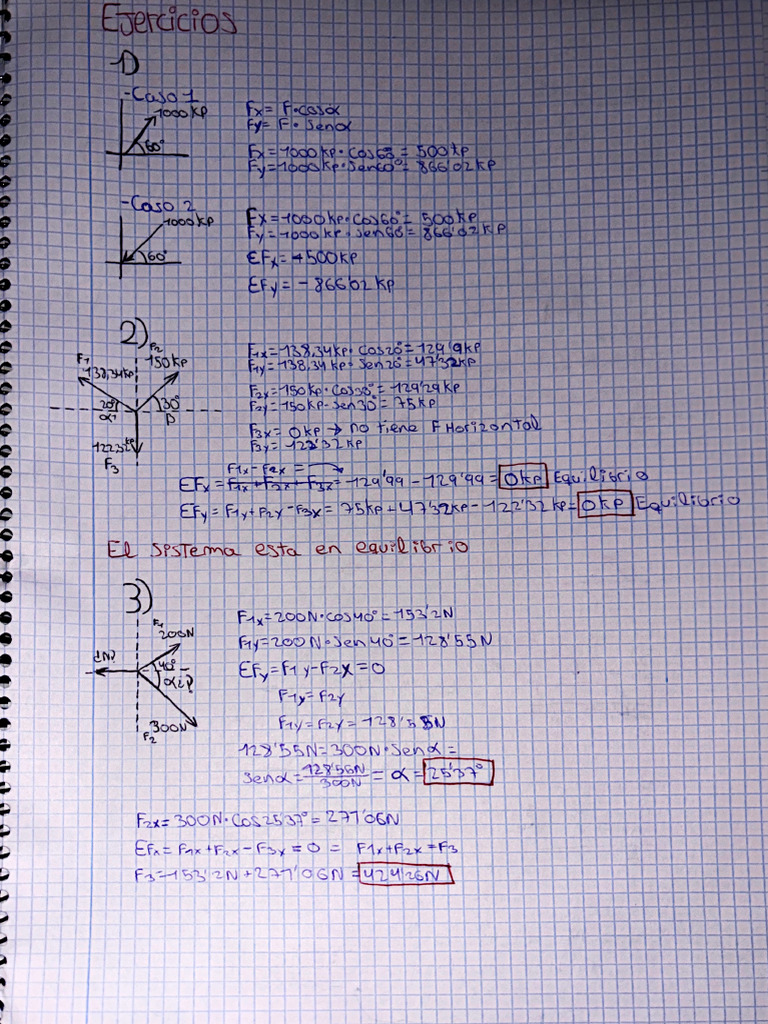 Ejercicios
1)
-Caso 1
1000kp
60°
Fx= F·cosα
Fy= F·senα
Fx=1000kp·cos60°=500kp
Fy=1000kp·sen60°=866'02kp
-Caso 2
1000kp
60°
Fx=1000kp·cos60°=500kp
Fy=1000kp·sen60°=866'02kp
ƐFx=-500kp
ƐFy=-866'02kp
2)
F1
138,34kp
F2
150kp
20°
α
30°
β
F3
F1x=138,34kp·cos20°=129'9kp
F1y=138,34kp·sen20°=47'32kp
F2x=150kp·cos30°=129'29kp
F2y=150kp·sen30°=75kp
F3x=0kp→no tiene F Horizontal
F3y=122'32kp
F1x-F2x=
ƐFx=F1x+F2x+F3x=129'99-129'99=0kp Equilibrio
ƐFy=F1y+F2y-F3x=75kp+47'32kp-122'32kp=0kp Equilibrio
El sistema esta en equilibrio
3)
F1
200N
¿N?
40°
α¿?
300N
F2
F1x=200N·cos40°=153'2N
F1y=200N·sen40°=128'55N
ƐFy=F1y-F2x=0
F1y=F2y
F1y=F2y=128'55N
128'55N=300N·senα=
senα=128'56N/300N=α=25'37°
F2x=300N·cos25'37°=271'06N
ƐFx=F1x+F2x-F3x=0= F1x+F2x=F3
F3=153'2N+271'06N=424'26N